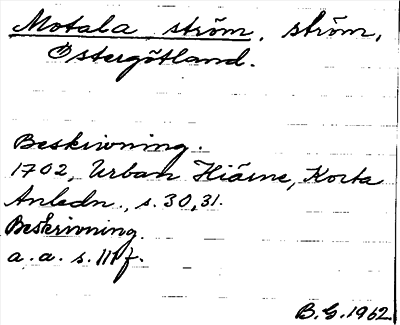 Motala ström, ström,
Östergötland.
Beskrivning.
1702, Urban Hiärne, Korta
Anledn., s. 30, 31.
Beskrivning.
a. a. s. 111 f.
B. G. 1962